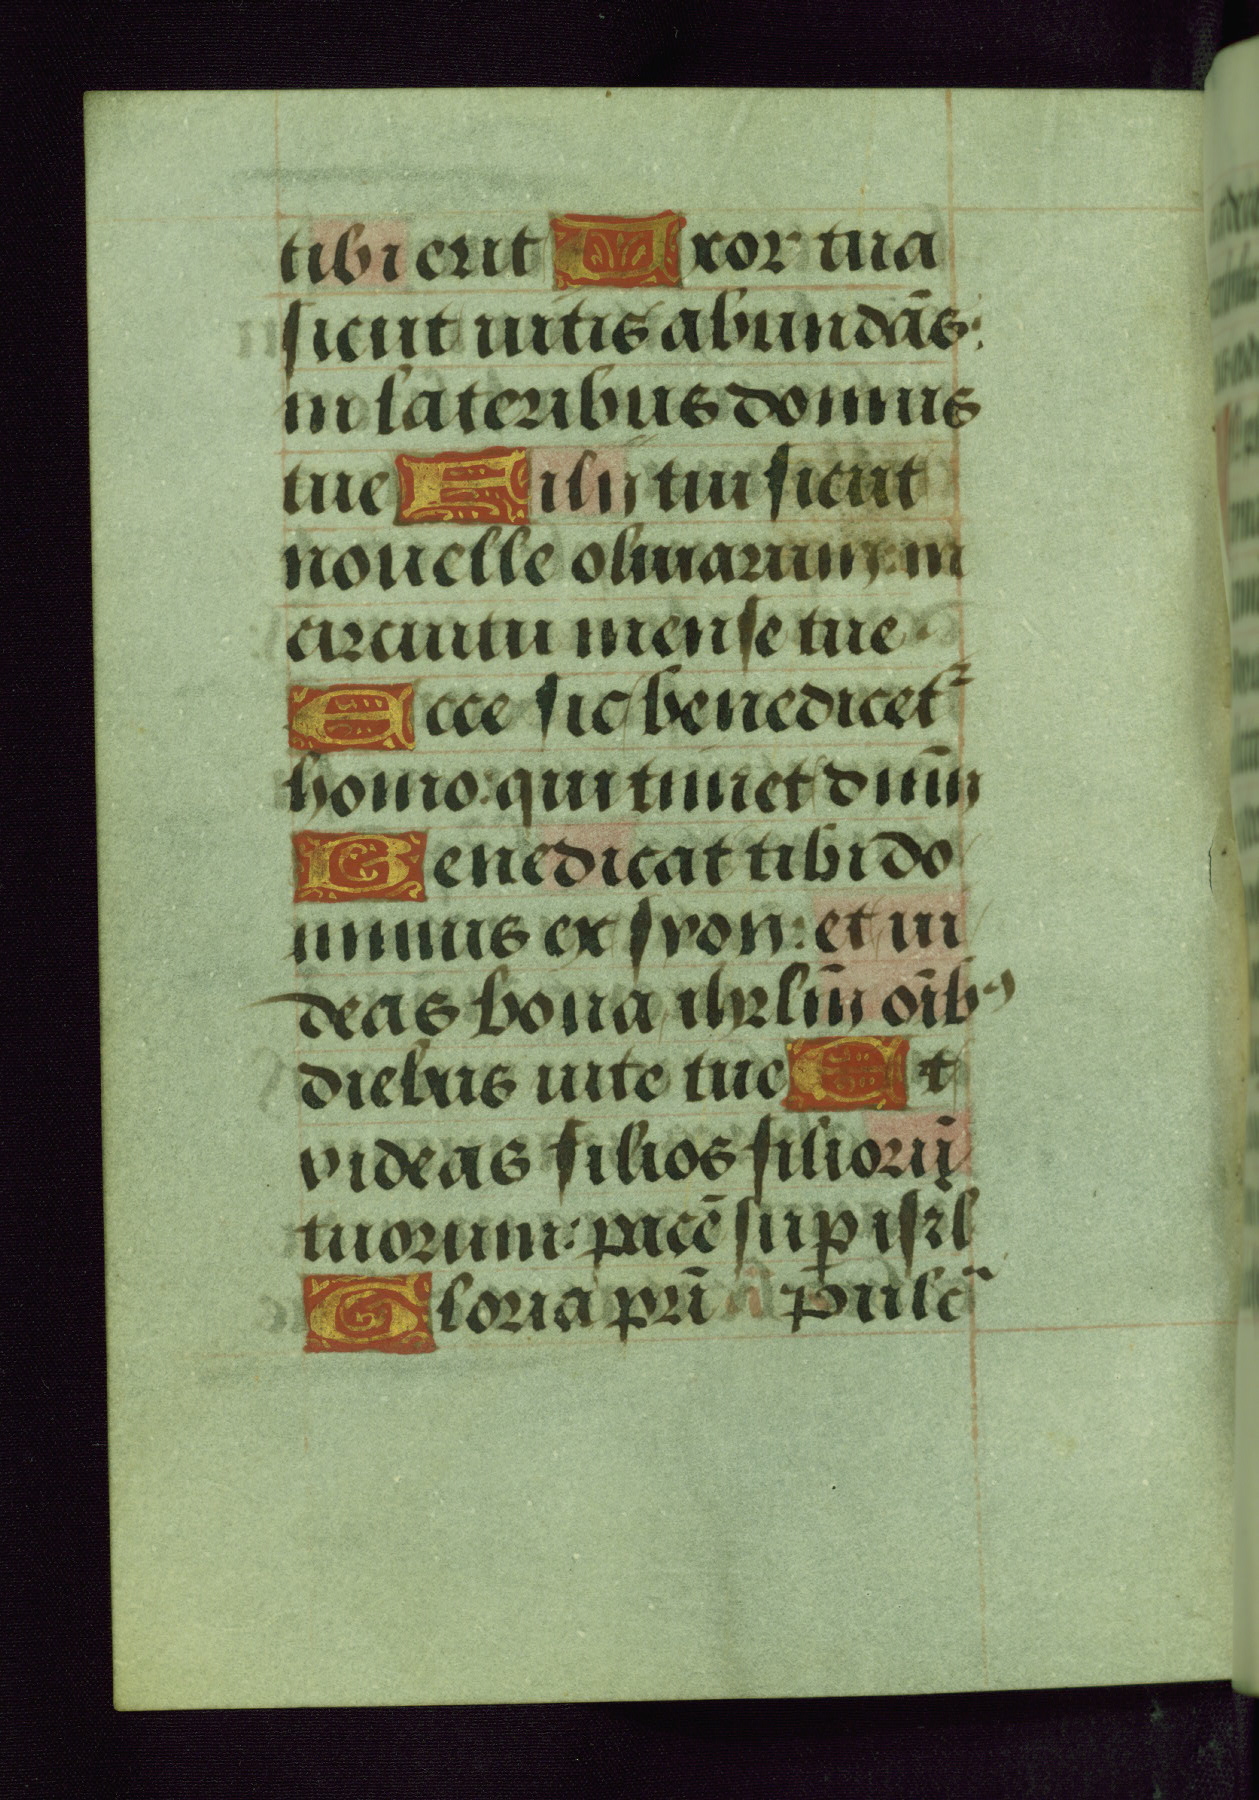 tibi erit Uxor tua
sicut uitis abundās:
in lateribus domus
tue Filii tui sicut
nouelle oliuarum: in
circuitu mense tue
Ecce sic benedicet᷑
homo: qui timet dnm̄
Benedicat tibi do
minus ex syon: et ui
deas bona ihrlm̄ oībꝰ
diebus uite tue Et
videas filios filiorū
tuorum: pacē suꝑ isrl
Gloria pri̅